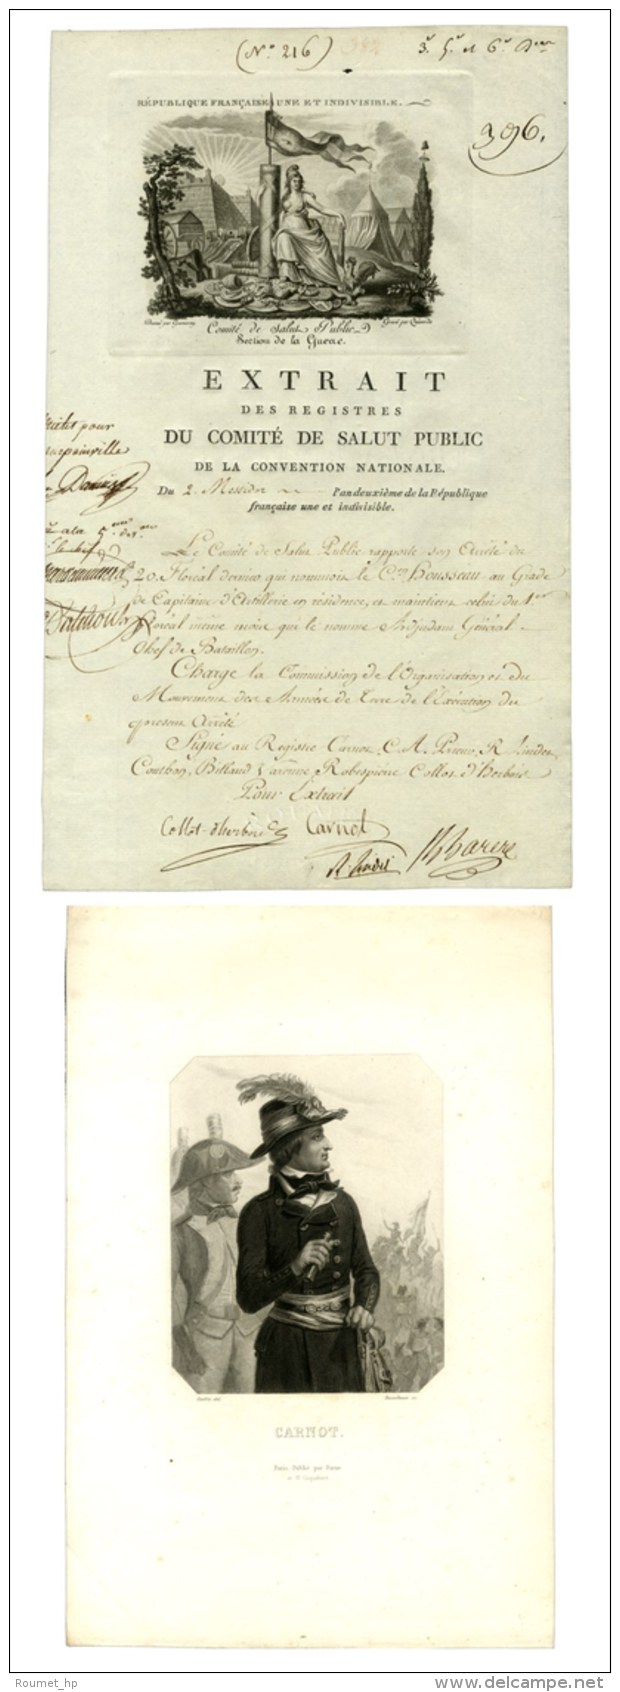 (N.° 216)
3.e 5.e et 6.e
396.
RÉPUBLIQUE FRANÇAISE UNE ET INDIVISIBLE.
Comité de Salut Public
Section de la Guerre.
EXTRAIT
DES REGISTRES
DU COMITÉ DE SALUT PUBLIC
DE LA CONVENTION NATIONALE.
Du 2. Messidor l'an deuxième de la République
française une et indivisible.
pour
Le Comité de Salut Public rapporte son Arrêté du
20. Floréal dernier qui nommoit le C.en Housseau au Grade
de Capitaine d'Artillerie en résidence, et maintient celui du 1.er
Floréal même mois qui le nomme Adjudant Général
Chef de Bataillon.
Charge la Commission de l'Organisation et du
Mouvement des Armées de Terre de l'Exécution du
présent Arrêté
Signé au Registre Carnot, C. A. Prieur, R. Lindet
Couthon, Billaud Varenne Robespierre Collot d'Herbois
Pour Extrait
Collot-d'herbois Carnot
R. Lindet B Barere
CARNOT.
Paris, Publié par Furne
Roumet_hp
delcampe.net